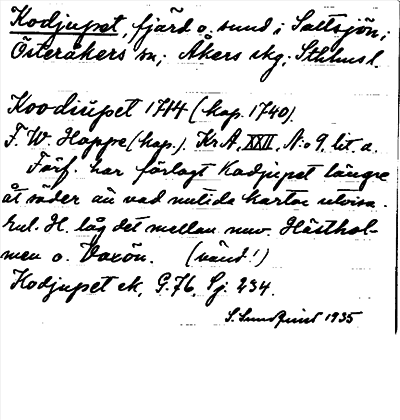 Kodjupet, fjärd o. sund i Saltsjön;
Österåkers sn; Åkers skg; Sthlms l.
Koodiupet 1744 (kop. 1740).
F. W. Hoppe (kop.). Kr.A. XXII, N:o 9. lit. a.
Förf. har förlagt Kodjupet längre
åt söder än vad nutida kartor utvisa.
Enl. H. låg det mellan nuv. Hästhol-
men o. Vaxön. (vänd!)
Kodjupet ek, G. 76, Sj. 234.
S. Sundquist 1935